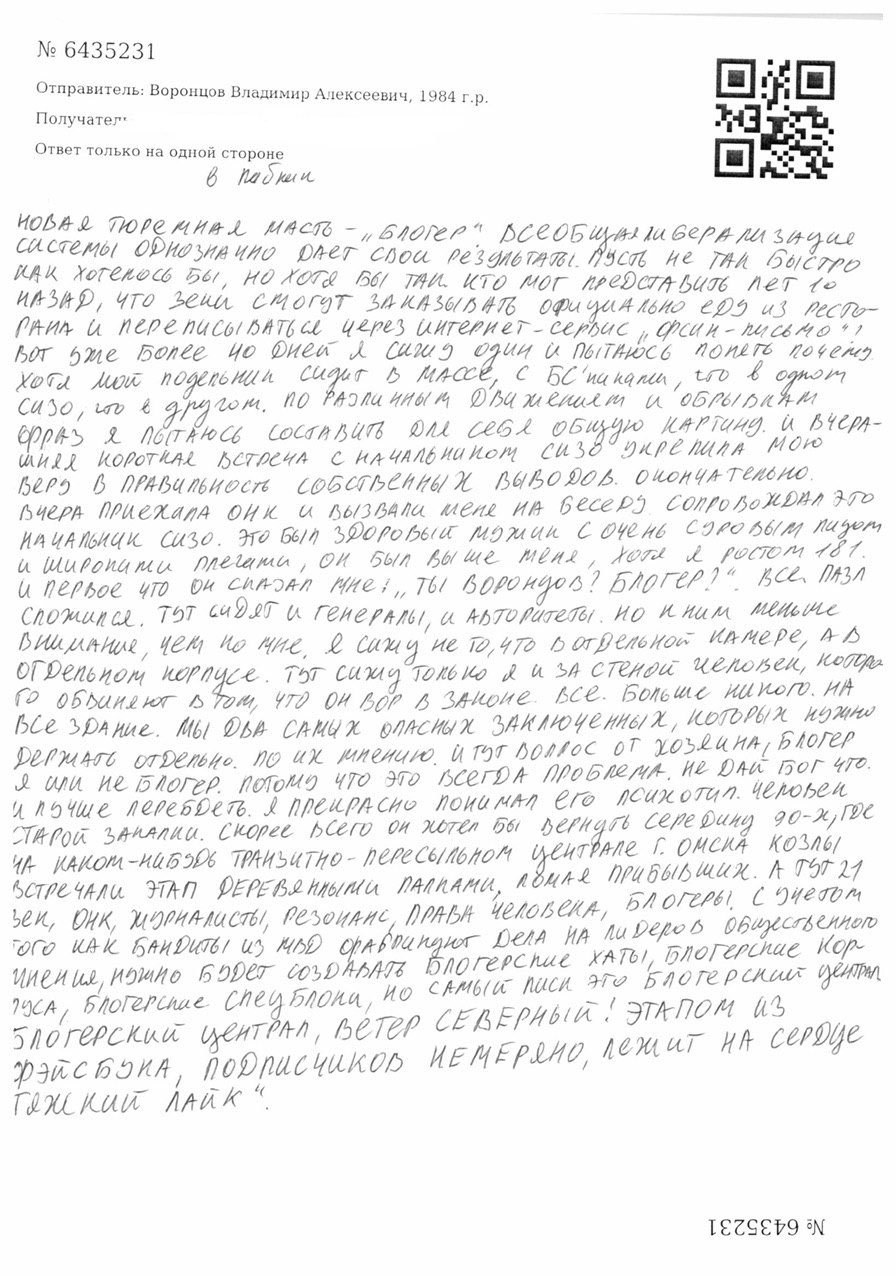 № 6435231
Отправитель: Воронцов Владимир Алексеевич, 1984 г.р.
Получател
Ответ только на одной стороне
в паблик
НОВАЯ ТЮРЕМНАЯ МАСТЬ – „БЛОГЕР“ ВСЕОБЩАЯ ЛИБЕРАЛИЗАЦИЯ
СИСТЕМЫ ОДНОЗНАЧНО ДАЕТ СВОИ РЕЗУЛЬТАТЫ. ПУСТЬ НЕ ТАК БЫСТРО
КАК ХОТЕЛОСЬ БЫ, НО ХОТЯ БЫ ТАК. КТО МОГ ПРЕДСТАВИТЬ ЛЕТ 10
НАЗАД, ЧТО ЗЕКИ СМОГУТ ЗАКАЗЫВАТЬ ОФИЦИАЛЬНО ЕДУ ИЗ РЕСТО-
РАНА И ПЕРЕПИСЫВАТЬСЯ ЧЕРЕЗ ИНТЕРНЕТ-СЕРВИС „ФСИН-ПИСЬМО“?
ВОТ УЖЕ БОЛЕЕ 40 ДНЕЙ Я СИЖУ ОДИН И ПЫТАЮСЬ ПОНЯТЬ ПОЧЕМУ.
ХОТЯ МОЙ ПОДЕЛЬНИК СИДИТ В МАССЕ, С БС'НИКАМИ, ЧТО В ОДНОМ
СИЗО, ЧТО В ДРУГОМ. ПО РАЗЛИЧНЫМ ДВИЖЕНИЯМ И ОБРЫВКАМ
ФРАЗ Я ПЫТАЮСЬ СОСТАВИТЬ ДЛЯ СЕБЯ ОБЩУЮ КАРТИНУ. И ВЧЕРА-
ШНЯЯ КОРОТКАЯ ВСТРЕЧА С НАЧАЛЬНИКОМ СИЗО УКРЕПИЛА МОЮ
ВЕРУ В ПРАВИЛЬНОСТЬ СОБСТВЕННЫХ ВЫВОДОВ. ОКОНЧАТЕЛЬНО.
ВЧЕРА ПРИЕХАЛА ОНК И ВЫЗВАЛИ МЕНЯ НА БЕСЕДУ. СОПРОВОЖДАЛ ЭТО
НАЧАЛЬНИК СИЗО. ЭТО БЫЛ ЗДОРОВЫЙ МУЖИК С ОЧЕНЬ СУРОВЫМ ЛИЦОМ
И ШИРОКИМИ ПЛЕЧАМИ, ОН БЫЛ ВЫШЕ МЕНЯ, ХОТЯ Я РОСТОМ 181.
И ПЕРВОЕ ЧТО ОН СКАЗАЛ МНЕ: „ТЫ ВОРОНЦОВ? БЛОГЕР?“. ВСЕ. ПАЗЛ
СЛОЖИЛСЯ. ТУТ СИДЯТ И ГЕНЕРАЛЫ, И АВТОРИТЕТЫ. НО К НИМ МЕНЬШЕ
ВНИМАНИЕ, ЧЕМ КО МНЕ. Я СИЖУ НЕ ТО, ЧТО В ОТДЕЛЬНОЙ КАМЕРЕ, А В
ОТДЕЛЬНОМ КОРПУСЕ. ТУТ СИЖУ ТОЛЬКО Я И ЗА СТЕНОЙ ЧЕЛОВЕК, КОТОРО
ГО ОБВИНЯЮТ В ТОМ, ЧТО ОН ВОР В ЗАКОНЕ. ВСЕ. БОЛЬШЕ НИКОГО. НА
ВСЕ ЗДАНИЕ. МЫ ДВА САМЫХ ОПАСНЫХ ЗАКЛЮЧЕННЫХ, КОТОРЫХ НУЖНО
ДЕРЖАТЬ ОТДЕЛЬНО. ПО ИХ МНЕНИЮ. И ТУТ ВОПРОС ОТ ХОЗЯИНА, БЛОГЕР
Я ИЛИ НЕ БЛОГЕР. ПОТОМУ ЧТО ЭТО ВСЕГДА ПРОБЛЕМА. НЕ ДАЙ БОГ ЧТО.
И ЛУЧШЕ ПЕРЕБДЕТЬ. Я ПРЕКРАСНО ПОНИМАЛ ЕГО ПСИХОТИП. ЧЕЛОВЕК
СТАРОЙ ЗАКАЛКИ. СКОРЕЕ ВСЕГО ОН ХОТЕЛ БЫ ВЕРНУТЬ СЕРЕДИНУ 90-Х, ГДЕ
НА КАКОМ-НИБУДЬ ТРАНЗИТНО-ПЕРЕСЫЛЬНОМ ЦЕНТРАЛЕ Г. ОМСКА КОЗЛЫ
ВСТРЕЧАЛИ ЭТАП ДЕРЕВЯННЫМИ ПАЛКАМИ, ЛОМАЯ ПРИБЫВШИХ. А ТУТ 21
ВЕК, ОНК, ЖУРНАЛИСТЫ, РЕЗОНАНС, ПРАВА ЧЕЛОВЕКА, БЛОГЕРЫ. С УЧЕТОМ
ТОГО КАК БАНДИТЫ ИЗ МВД ФАБРИКУЮТ ДЕЛА НА ЛИДЕРОВ ОБЩЕСТВЕННОГО
МНЕНИЯ, НУЖНО БУДЕТ СОЗДАВАТЬ БЛОГЕРСКИЕ ХАТЫ, БЛОГЕРСКИЕ КОР-
ПУСА, БЛОГЕРСКИЕ СПЕЦБЛОКИ, НО САМЫЙ ПИСК ЭТО БЛОГЕРСКИЙ ЦЕНТРАЛ
БЛОГЕРСКИЙ ЦЕНТРАЛ, ВЕТЕР СЕВЕРНЫЙ! ЭТАПОМ ИЗ
ФЭЙСБУКА, ПОДПИСЧИКОВ НЕМЕРЯНО, ЛЕЖИТ НА СЕРДЦЕ
ТЯЖКИЙ ЛАЙК“.
№ 6435231